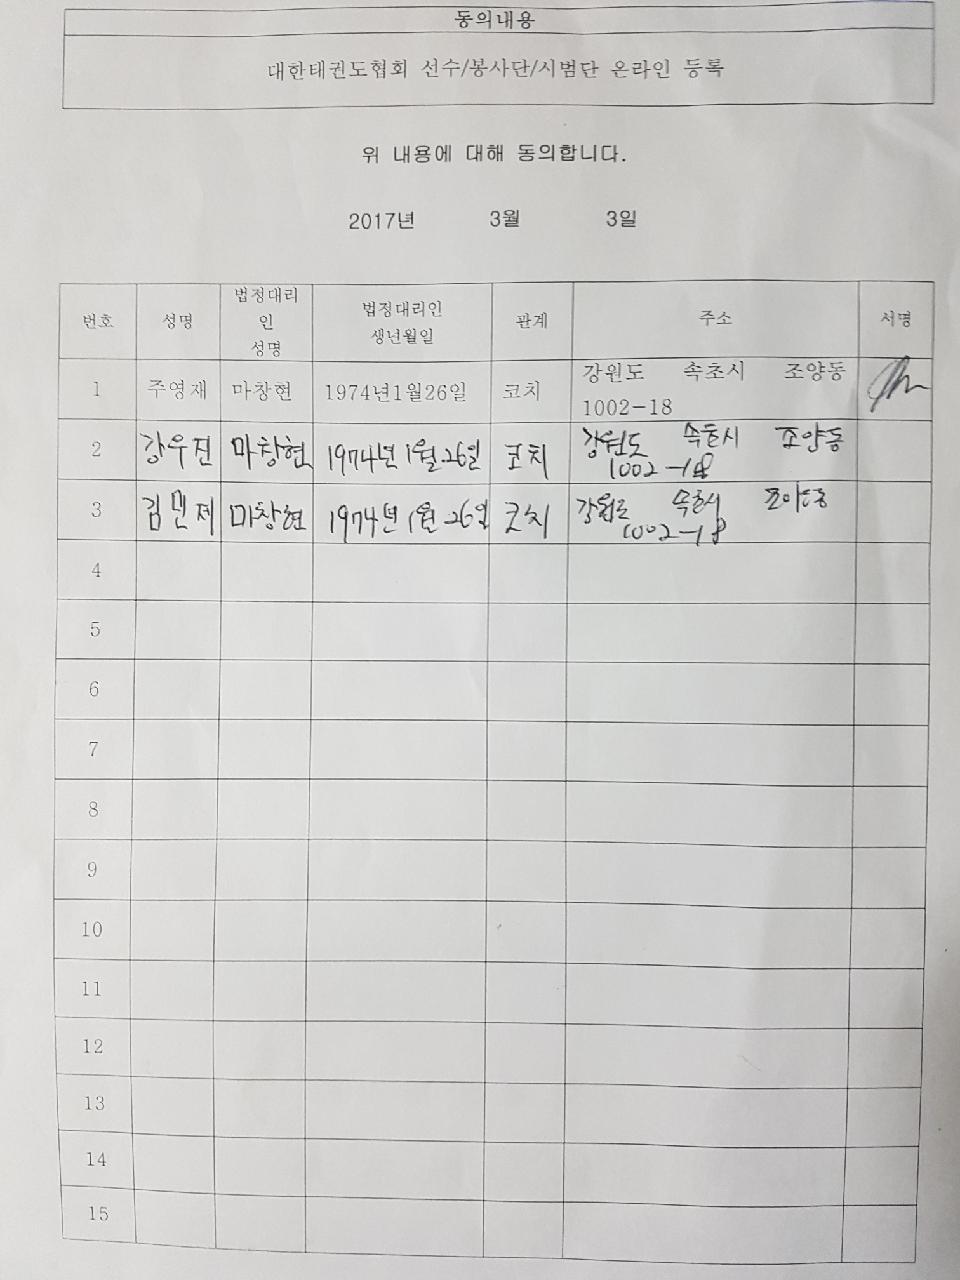 동의내용
대한태권도협회 선수/봉사단/시범단 온라인 등록
위 내용에 대해 동의합니다.
2017년 3월 3일
번호 성명 법정대리인 성명 법정대리인 생년월일 관계 주소 서명
1 주영재 마창현 1974년1월26일 코치 강원도 속초시 조양동 1002-18
2 강우진 마창현 1974년 1월 26일 코치 강원도 속초시 조양동 1002-18
3 김민제 마창현 1974년 1월 26일 코치 강원도 속초시 조양동 1002-18
4
5
6
7
8
9
10
11
12
13
14
15